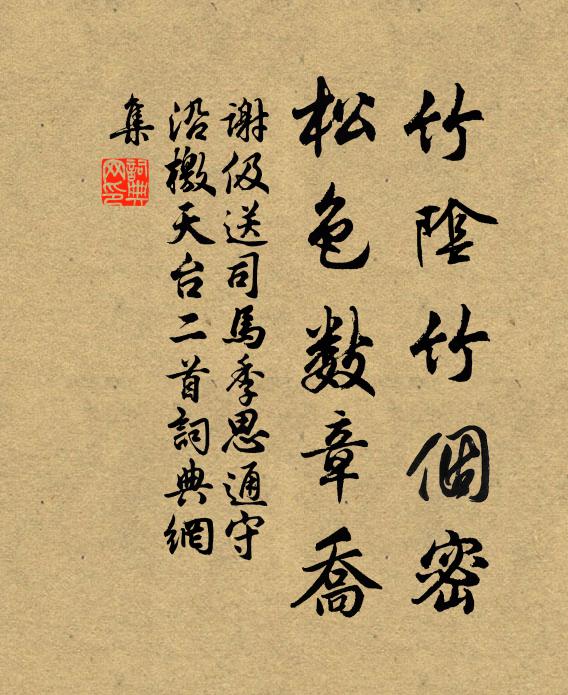 竹陰竹個密
松色數章喬
謝伋送司馬季思通守
沿檄天台二首詞典網
集
詞典网印